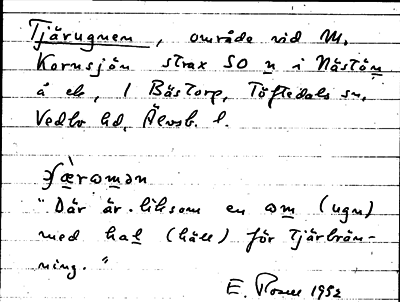 Tjärugnen, område vid M.
Kornsjön strax SO n i Nästön
å ek, 1 Bästorp, Töftedals sn,
Vedbo hd, Älvsb. l.
"Där är liksom en ωm (ugn)
med hal (häll) för tjärbrän-
ning."
E. 1952